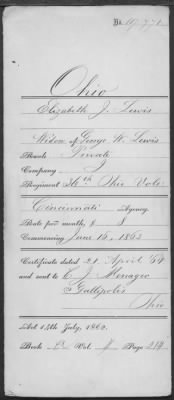 No. 19,771
Ohio
Elizabeth J. Lewis
Widow of George W. Lewis
Rank Private
Company
Regiment 36th Ohio Vols
Cincinnati Agency.
Rate per month, $ 8
Commencing June 15, 1862
Certificate dated 21 April '64
and sent to C. J. Menager
Gallipolis
Ohio
Act 14th July, 1862.
Book Vol. Page